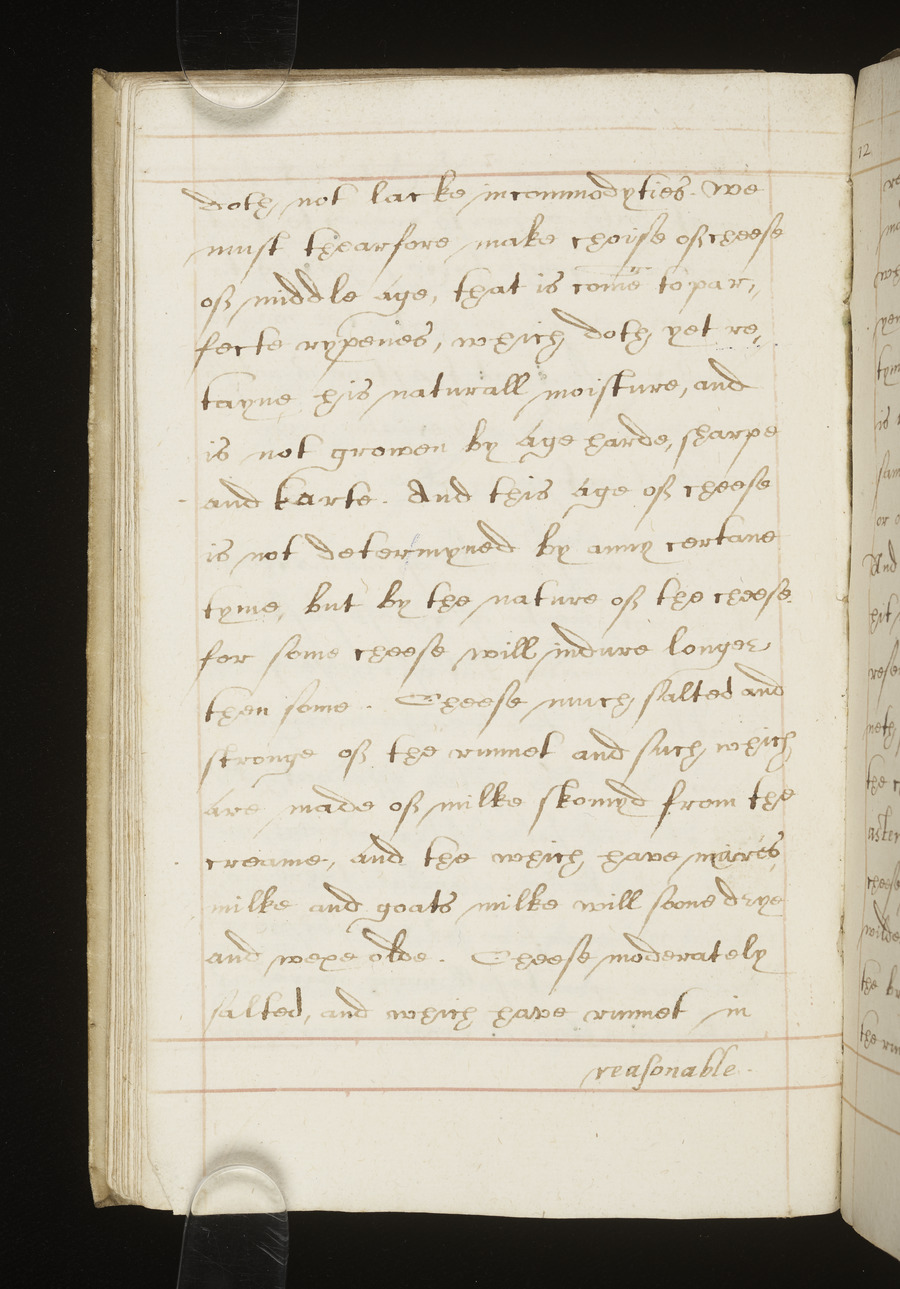 doth not lacke incommodyties. We
must thearfore make choise of cheese
of middle age, that is come to par,,
fecte rypenes, which doth yet re,,
tayne his naturall moisture, and
is not growen by age harde, sharpe
and tarte. And this age of cheese
is not determyned by anny certane
tyme, but by the nature of the cheese.
for some cheese will indure longer
then some. Cheese much salted and
stronge of the runnet and such which
are made of milke skomyd from the
creame, and the which have mares
milke and goats milke will soone drye
and wexe olde. Cheese moderately
salted, and which have runnet in
reasonable.
12
And
hit
is
or
the
the
the